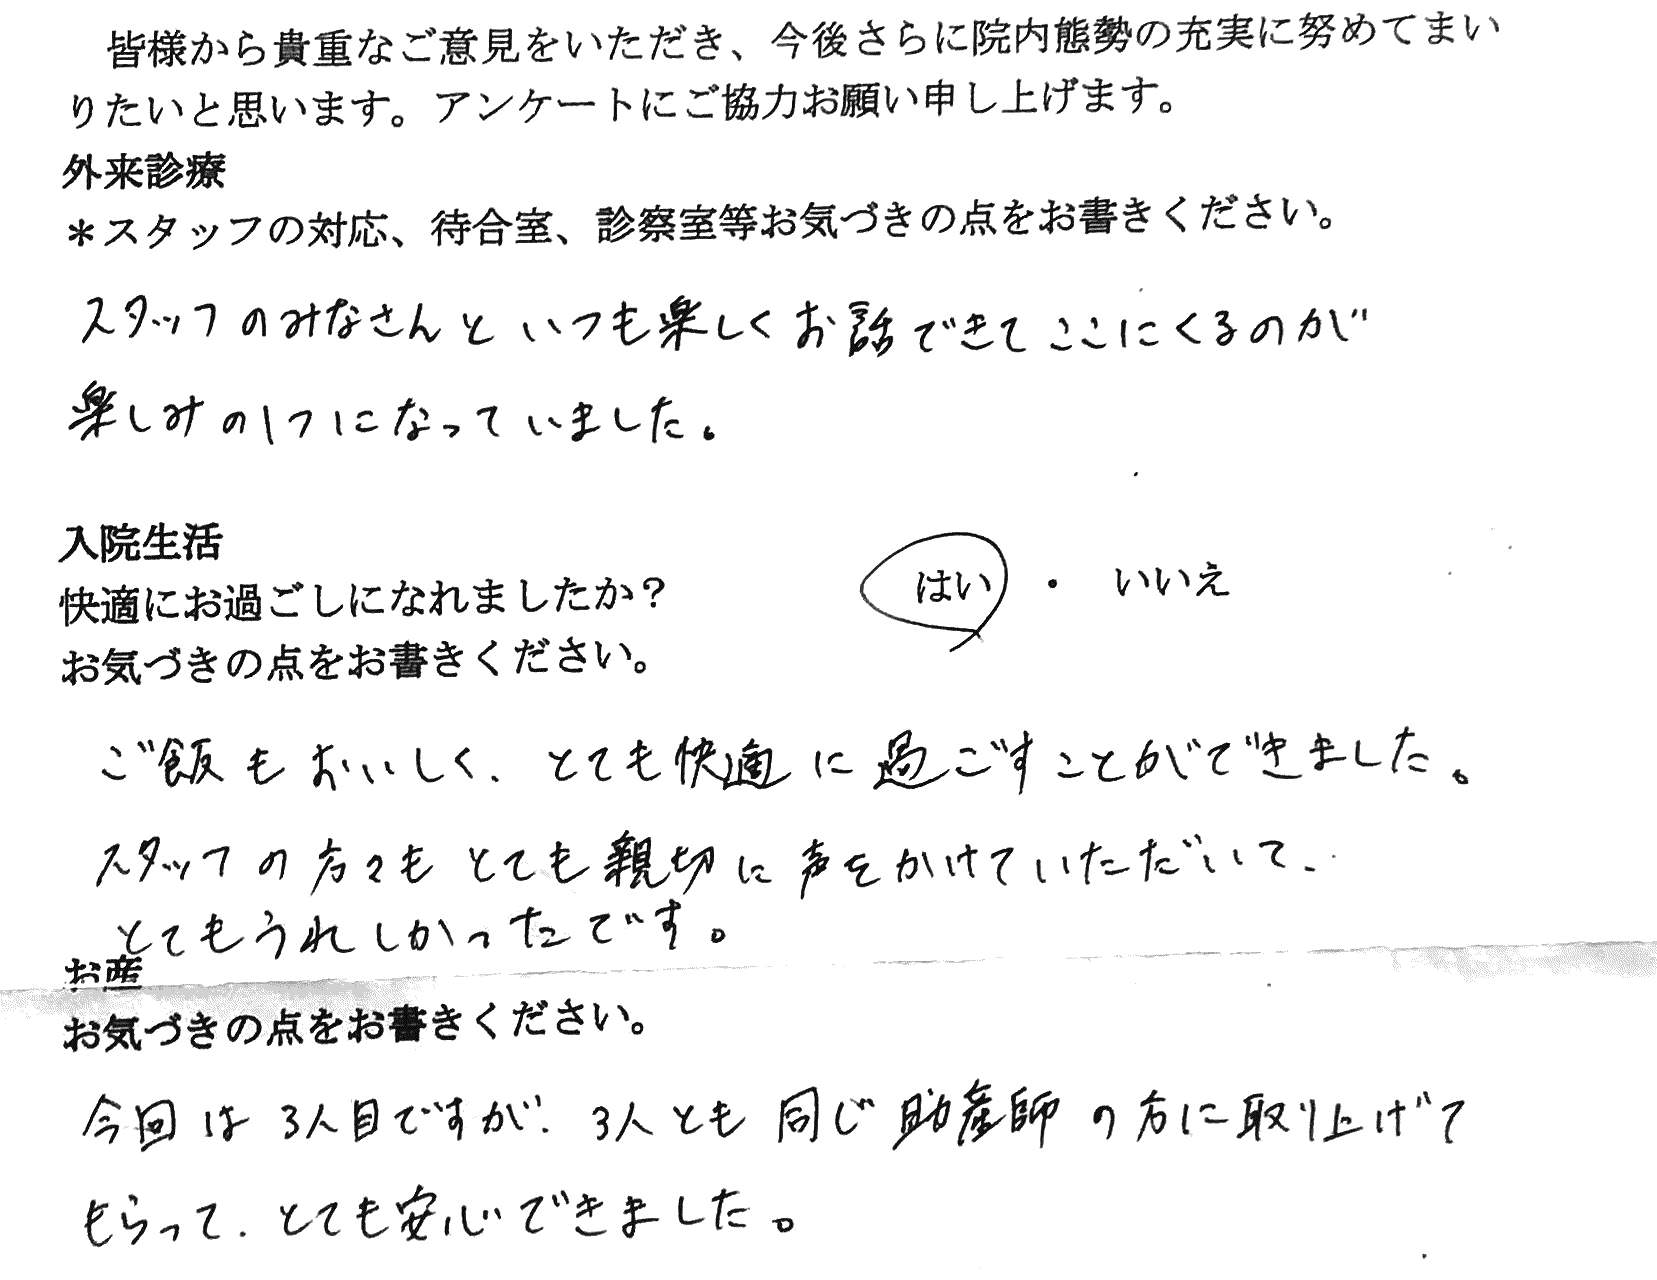 皆様から貴重なご意見をいただき、今後さらに院内態勢の充実に努めてまい
りたいと思います。アンケートにご協力お願い申し上げます。
外来診療
＊スタッフの対応、待合室、診察室等お気づきの点をお書きください。
スタッフのみなさんといつも楽しくお話できてここにくるのが
楽しみの1つになっていました。
入院生活
快適にお過ごしになれましたか？ はい ・ いいえ
お気づきの点をお書きください。
ご飯もおいしく、とても快適に過ごすことができました。
スタッフの方々もとても親切に声をかけていただいて、
とてもうれしかったです。
お産
お気づきの点をお書きください。
今回は3人目ですが、3人とも同じ助産師の方に取り上げて
もらって、とても安心できました。